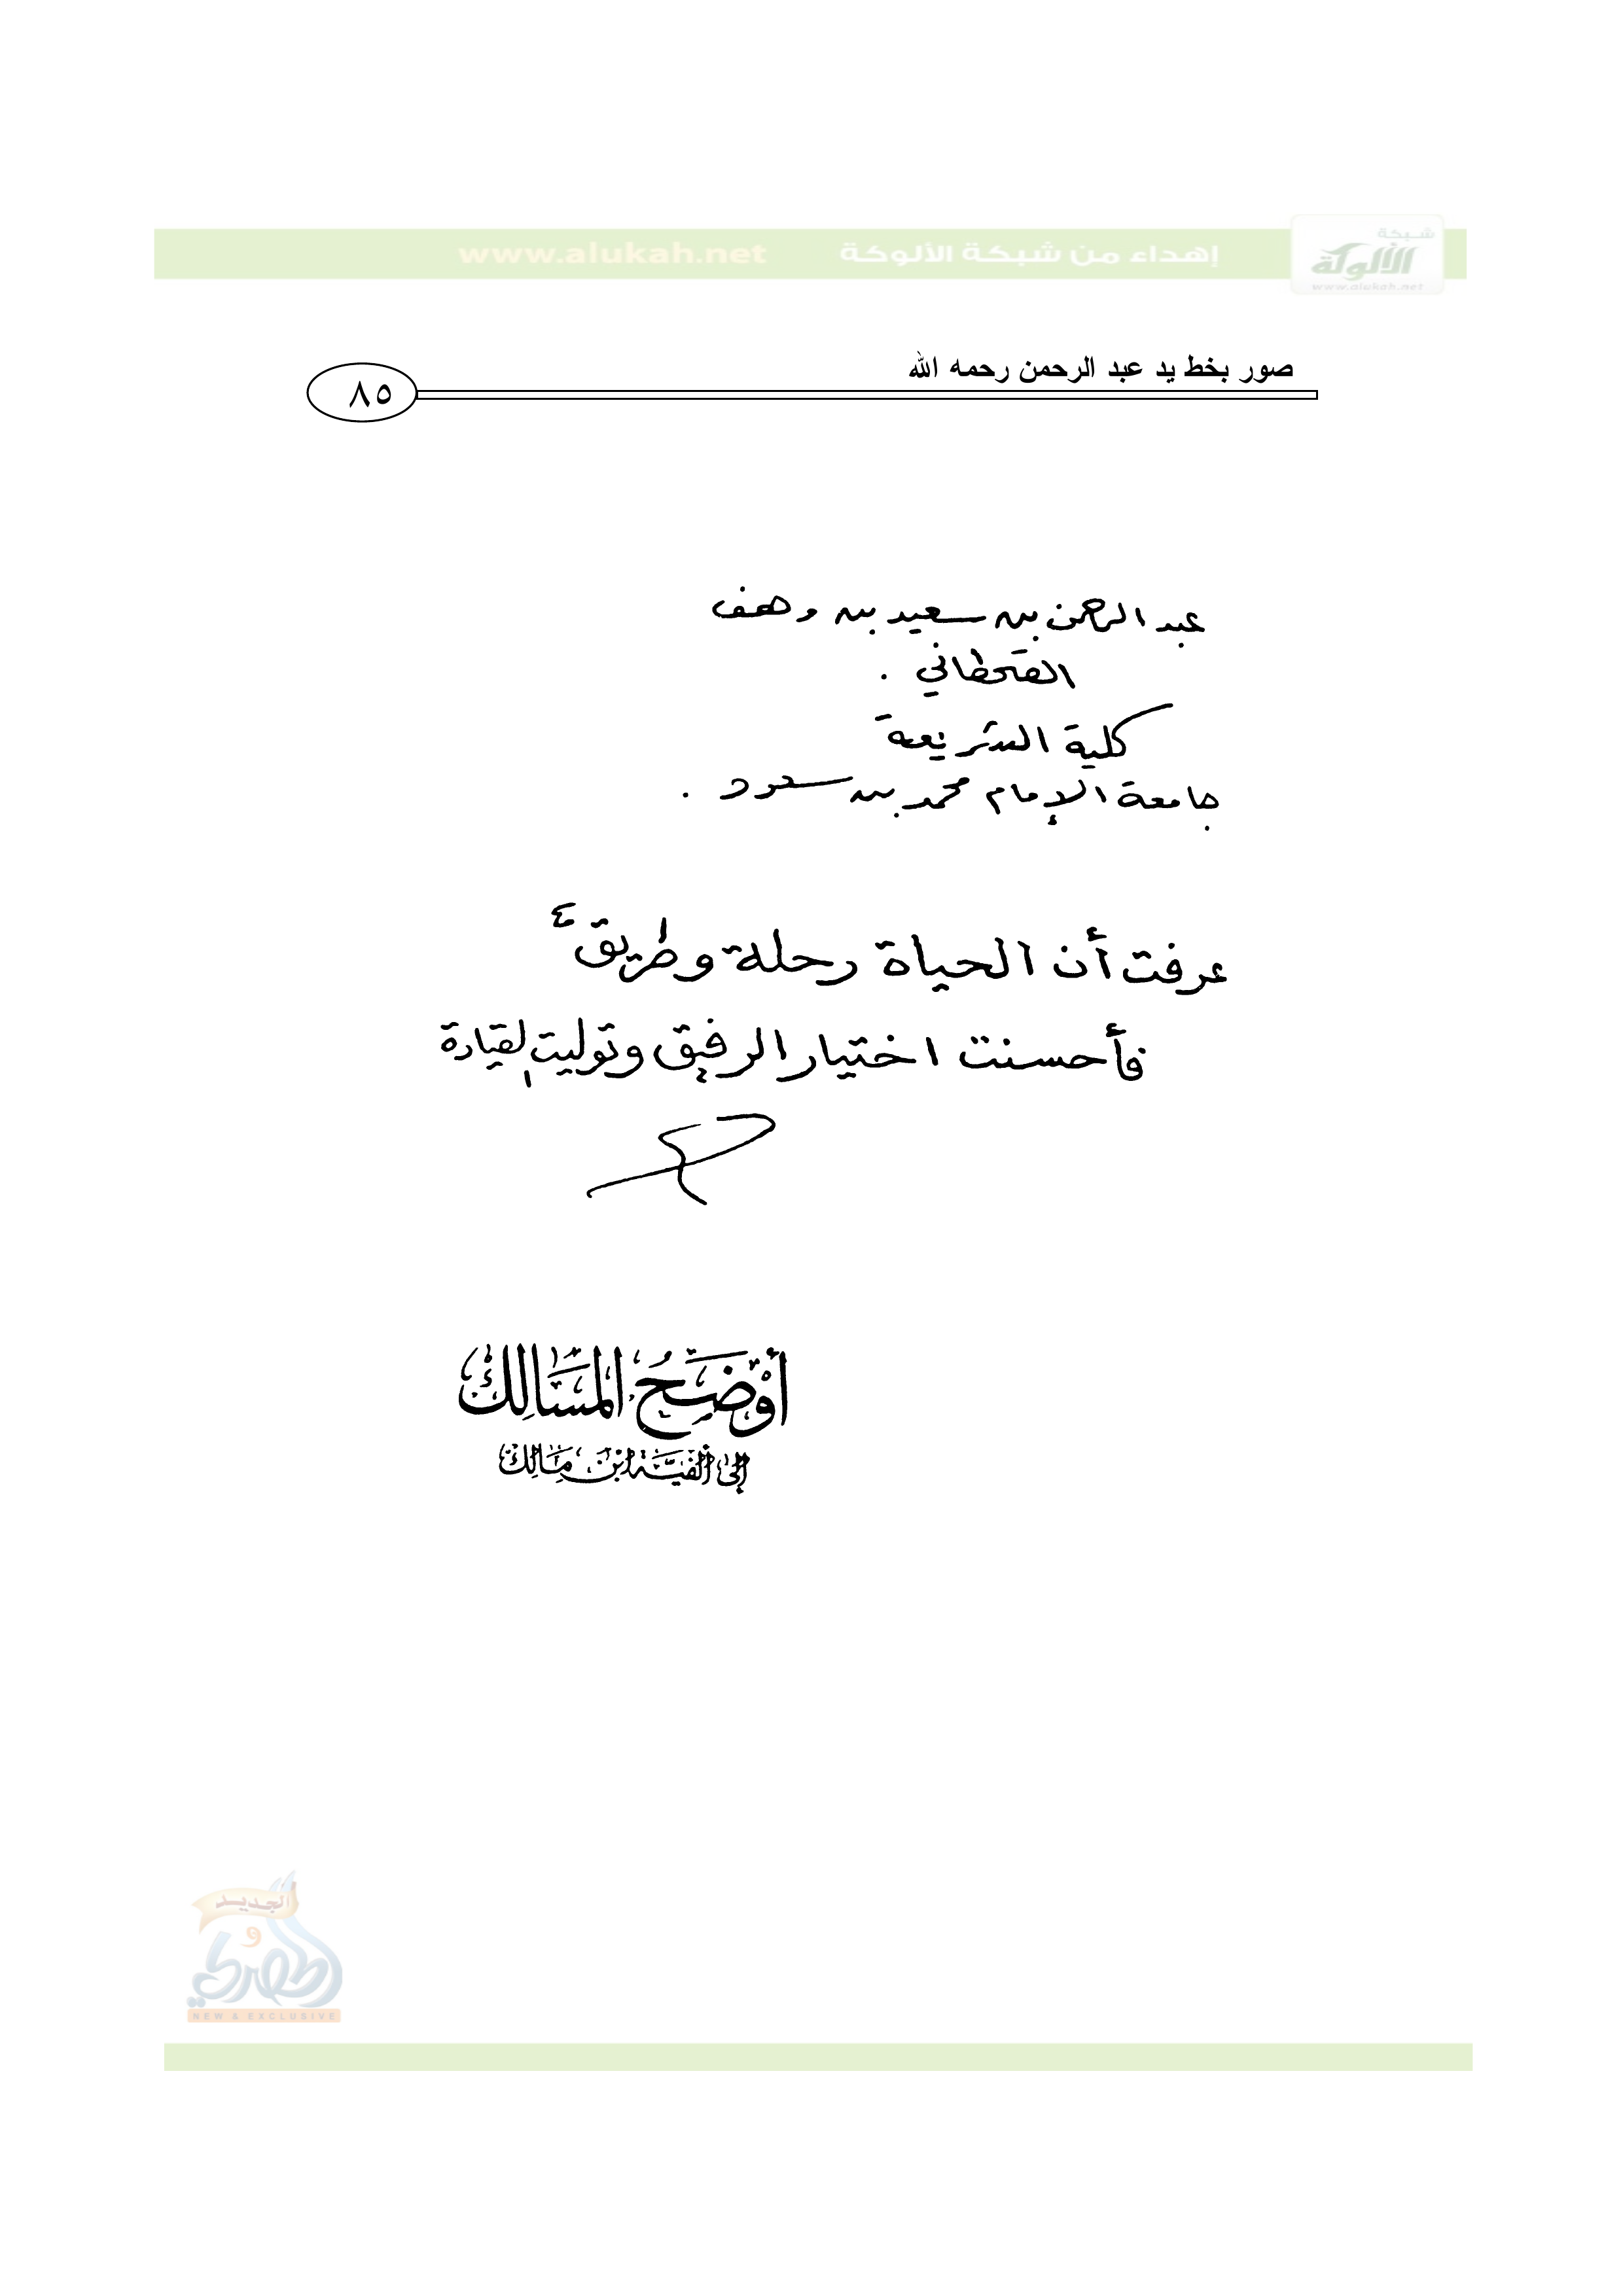 إهداء من شبكة الألوكة www.alukah.net
شبكة
الألوكة
www.alukah.net
صور بخط يد عبد الرحمن رحمه الله
٨٥
عبد الرحمن بن سعيد بن وهف
القحطاني .
كلية الشريعة
جامعة الإمام محمد بن سعود .
عرفت أن الحياة رحلة وطريق
فأحسنت اختيار الرفيق وتوليت القيادة
أَوْضَحُ المَسَالِك
إلى ألفيَّة ابْن مَالِك
الجديد
و
الحصري
NEW & EXCLUSIVE